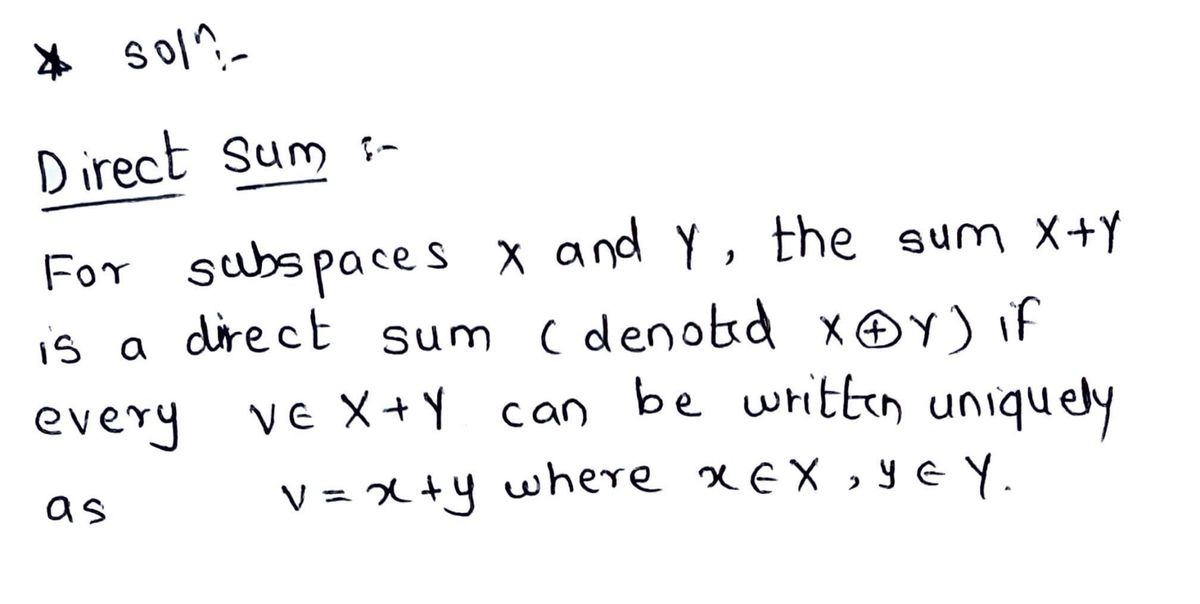 * solⁿ:-
Direct Sum :-
For subspaces X and Y, the sum X+Y
is a direct sum (denoted X⊕Y) if
every v∈ X+Y can be written uniquely
as v = x+y where x∈X, y∈Y.